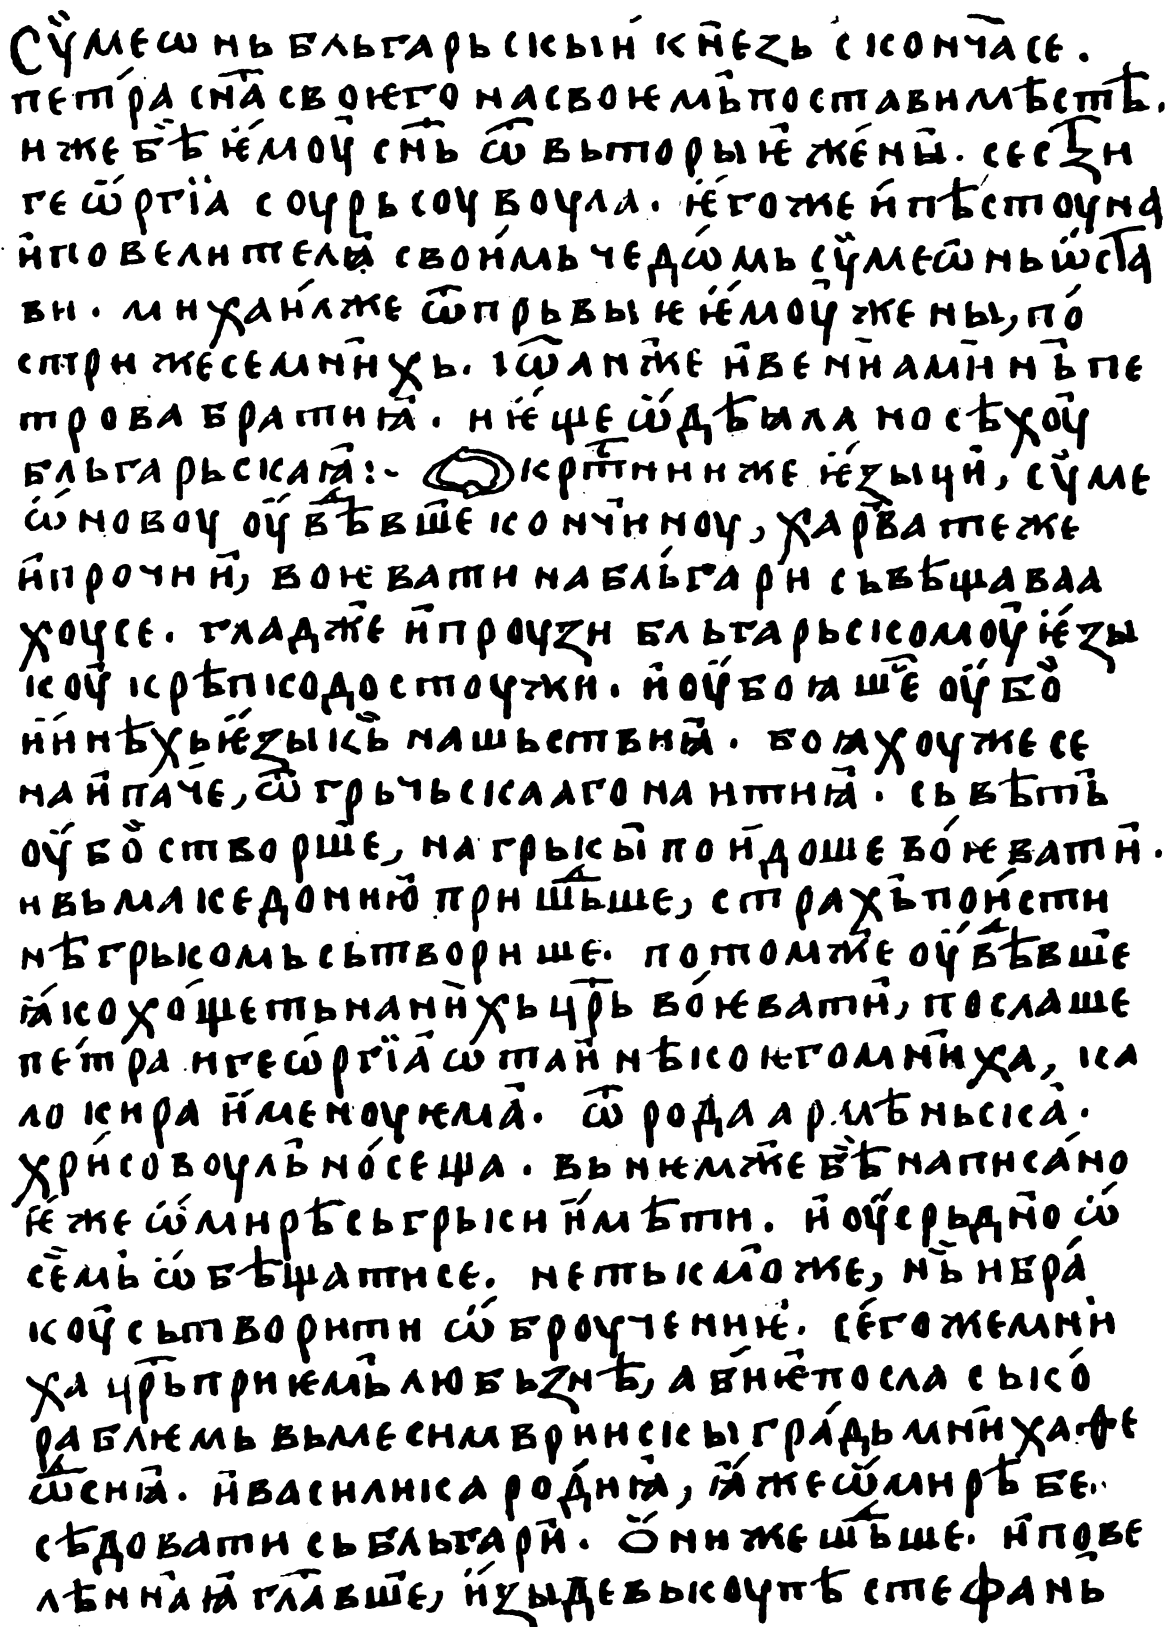 Сѵ̈меѡнь бльгарьскыи кн҃езь скончасе.
петра сн҃а своѥго насвоѥмь постави мѣстѣ.
иже бѣ ѥмоу сн҃ь ѿ вьторыѥ жены. сестри
геѡргїа соурьсоувоула. ѥгоже и пѣстоуна
и повелителꙗ своимь чедѡмь сѵ̈меѡнь ѡста
ви. михаилже ѿ прьвыѥ ѥмоу жены, по
стриже се мнихь. іѡан же и венїамин нь пе
трова братиꙗ. и ѥще ѡдѣꙗла носѣхоу
бльгарьскаꙗ:~ Ѡкрⷭтнии же ѥзыци, сѵ̈ме
ѡновоу оувѣⷣвше кончиноу, харвате же
и прочии, воѥвати на бльгари сьвѣщаваа
хоусе. глад же и проузи бльгарьскомоу ѥзы
коу крѣпко достоужи. и оубоꙗше оубо
инѣхь ѥзыкь нашьствиꙗ. боꙗхоу же се
наипаче, ѿ грьчьскааго наитиꙗ. сьвѣть
оубо створше, на грькы поидоше воѥвати.
и вь македонию пришⷣьше, страхь поисти
нѣ грькомь сьтворише. потомже оувѣⷣвше
ꙗко хощеть на нихь цр҃ь воѥвати, послаше
петра и геѡргїа ѡтаи нѣкоѥго мниха, ка
локира именоуѥма. ѿ рода армѣньска.
хрисовоуль носеща. вь нѥмже бѣ написано
ѥже ѡ мирѣ сь грьки имѣти. и оусрьдно ѡ
семь ѡбѣщати се. не тькмо же, нь и бра
коу сьтворити ѡброучениѥ. сего же мни
ха цр҃ь приѥмь любьзнѣ, абиѥ посла сь ко
раблѥмь вь месимврискы градь мниха ѳе
ѡⷣсиꙗ. и василика родїиꙗ, ꙗже ѡ мирѣ бе
сѣдовати сь бльгари. ѡни же шⷣьше. и пове
лѣннаꙗ гла҃вше, изыде вькоупѣ стефань